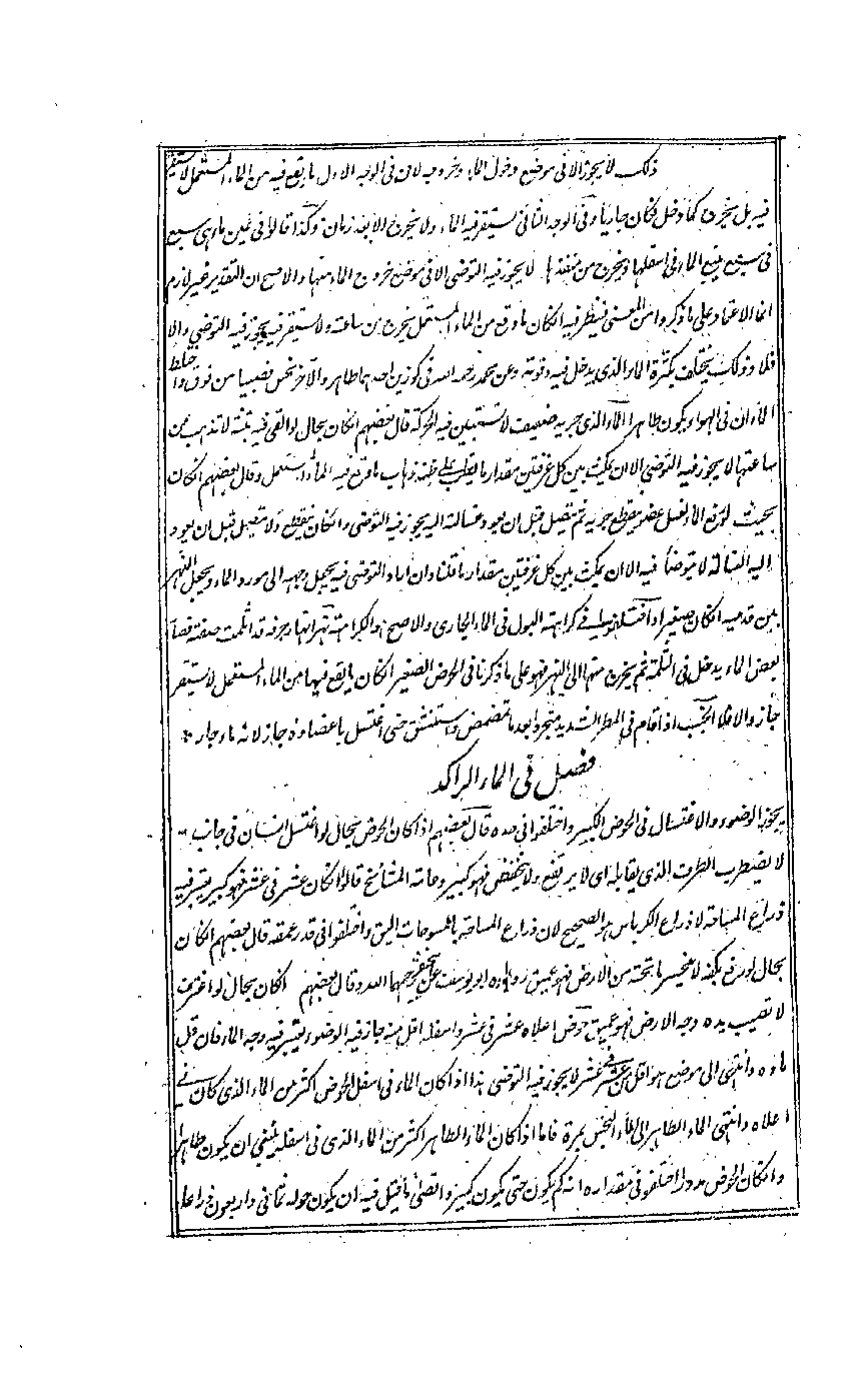 ذلك لا يجوز الا فى موضع دخول الماء وخروجه لان فى الوجه الاول ما يقع فيه من الماء المستعمل لا يستقر
فيه بل يخرج كما دخل فكان جاريا وفى الوجه الثانى يستقر فيه الماء ولا يخرج الا بعد زمان وكذا قالوا فى عين ماء هى سبع
فى سبع ينبع الماء فى اسفلها ويخرج من منفذها لا يجوز فيه التوضى الا فى موضع خروج الماء منها والاصح ان التقدير غير لازم
انما الاعتماد على ما ذكروا من المعنى فينظر فيه ان كان ما وقع من الماء المستعمل يخرج من ساعته ولا يستقر فيه يجوز فيه التوضى والا
فلا وذلك يختلف بكثرة الماء الذى يدخل فيه وقوته وعن محمد رحمه الله فى كوزين احدهما طاهر والآخر نجس فصبا من فوق واختلط
الماءان فى الهواء يكون طاهرا الماء الذى جريه ضعيف لا تستبين فيه الحركة قال بعضهم ان كان بحال لو القى فيه تبنة لا تذهب من
ساعتها لا يجوز فيه التوضى الا ان يمكث بين كل غرفتين مقدار ما يغلب على ظنه ذهاب ما وقع فيه الماء المستعمل وقال بعضهم ان كان
بحيث لو رفع الماء لغسل عضو ينقطع جريه ثم يتصل قبل ان يعود غسالته اليه يجوز فيه التوضى وان كان ينقطع ولا يتصل قبل ان يعود
اليه الغسالة لا يتوضأ فيه الا ان يمكث بين كل غرفتين مقدار ما قلنا وان اراد التوضى فيه يجعل وجهه الى مورد الماء ويجعل النهر
بين قدميه ان كان صغيرا واختلفوا فى كراهة البول فى الماء الجارى والاصح هو الكراهة نهر انهار جرفه قد انثلمت ضفته فصار
بعض الماء يدخل فى الثلمة ثم يخرج منها الى النهر فهو على ما ذكرنا فى الحوض الصغير ان كان ما يقع فيها من الماء المستعمل لا يستقر
جاز والا فلا الجنب اذا قام فى المطر الشديد متجردا بعدما تمضمض واستنشق حتى اغتسل باعضاؤه جاز لانه ماء جار
فصل فى الماء الراكد
يجوز الوضوء والاغتسال فى الحوض الكبير واختلفوا فى حده قال بعضهم اذا كان الحوض بحال لو اغتسل انسان فى جانب
لا يضطرب الطرف الذى يقابله اى لا يرتفع ولا ينخفض فهو كبير وعامة المشائخ قالوا ان كان عشرا فى عشر فهو كبير يعتبر فيه
ذراع المساحة لا ذراع الكرباس هو الصحيح لان ذراع المساحة بالممسوحات اليق واختلفوا فى قدر عمقه قال بعضهم ان كان
بحال لو رفع بكفه لا ينحسر ما تحته من الارض فهو عميق رواه ابو يوسف عن ابى حنيفة رحمهما الله وقال بعضهم ان كان بحال لو اغترف
لا تصيب يده وجه الارض فهو عميق حوض اعلاه عشر فى عشر واسفله اقل منه جاز فيه الوضوء يعتبر فيه وجه الماء فان قل
ماؤه وانتهى الى موضع هو اقل من عشر فى عشر لا يجوز فيه التوضى هذا اذا كان الماء فى اسفل الحوض اكثر من الماء الذى كان فى
اعلاه وانتهى الماء الطاهر الى الماء النجس بمرة فاما اذا كان الماء الطاهر اكثر من الماء الذى فى اسفله ينبغى ان يكون طاهرا
وان كان الحوض مدورا اختلفوا فى مقداره انه كم يكون حتى يكون كبيرا واقصى ما قيل فيه ان يكون حوله ثمانى واربعون ذراعا